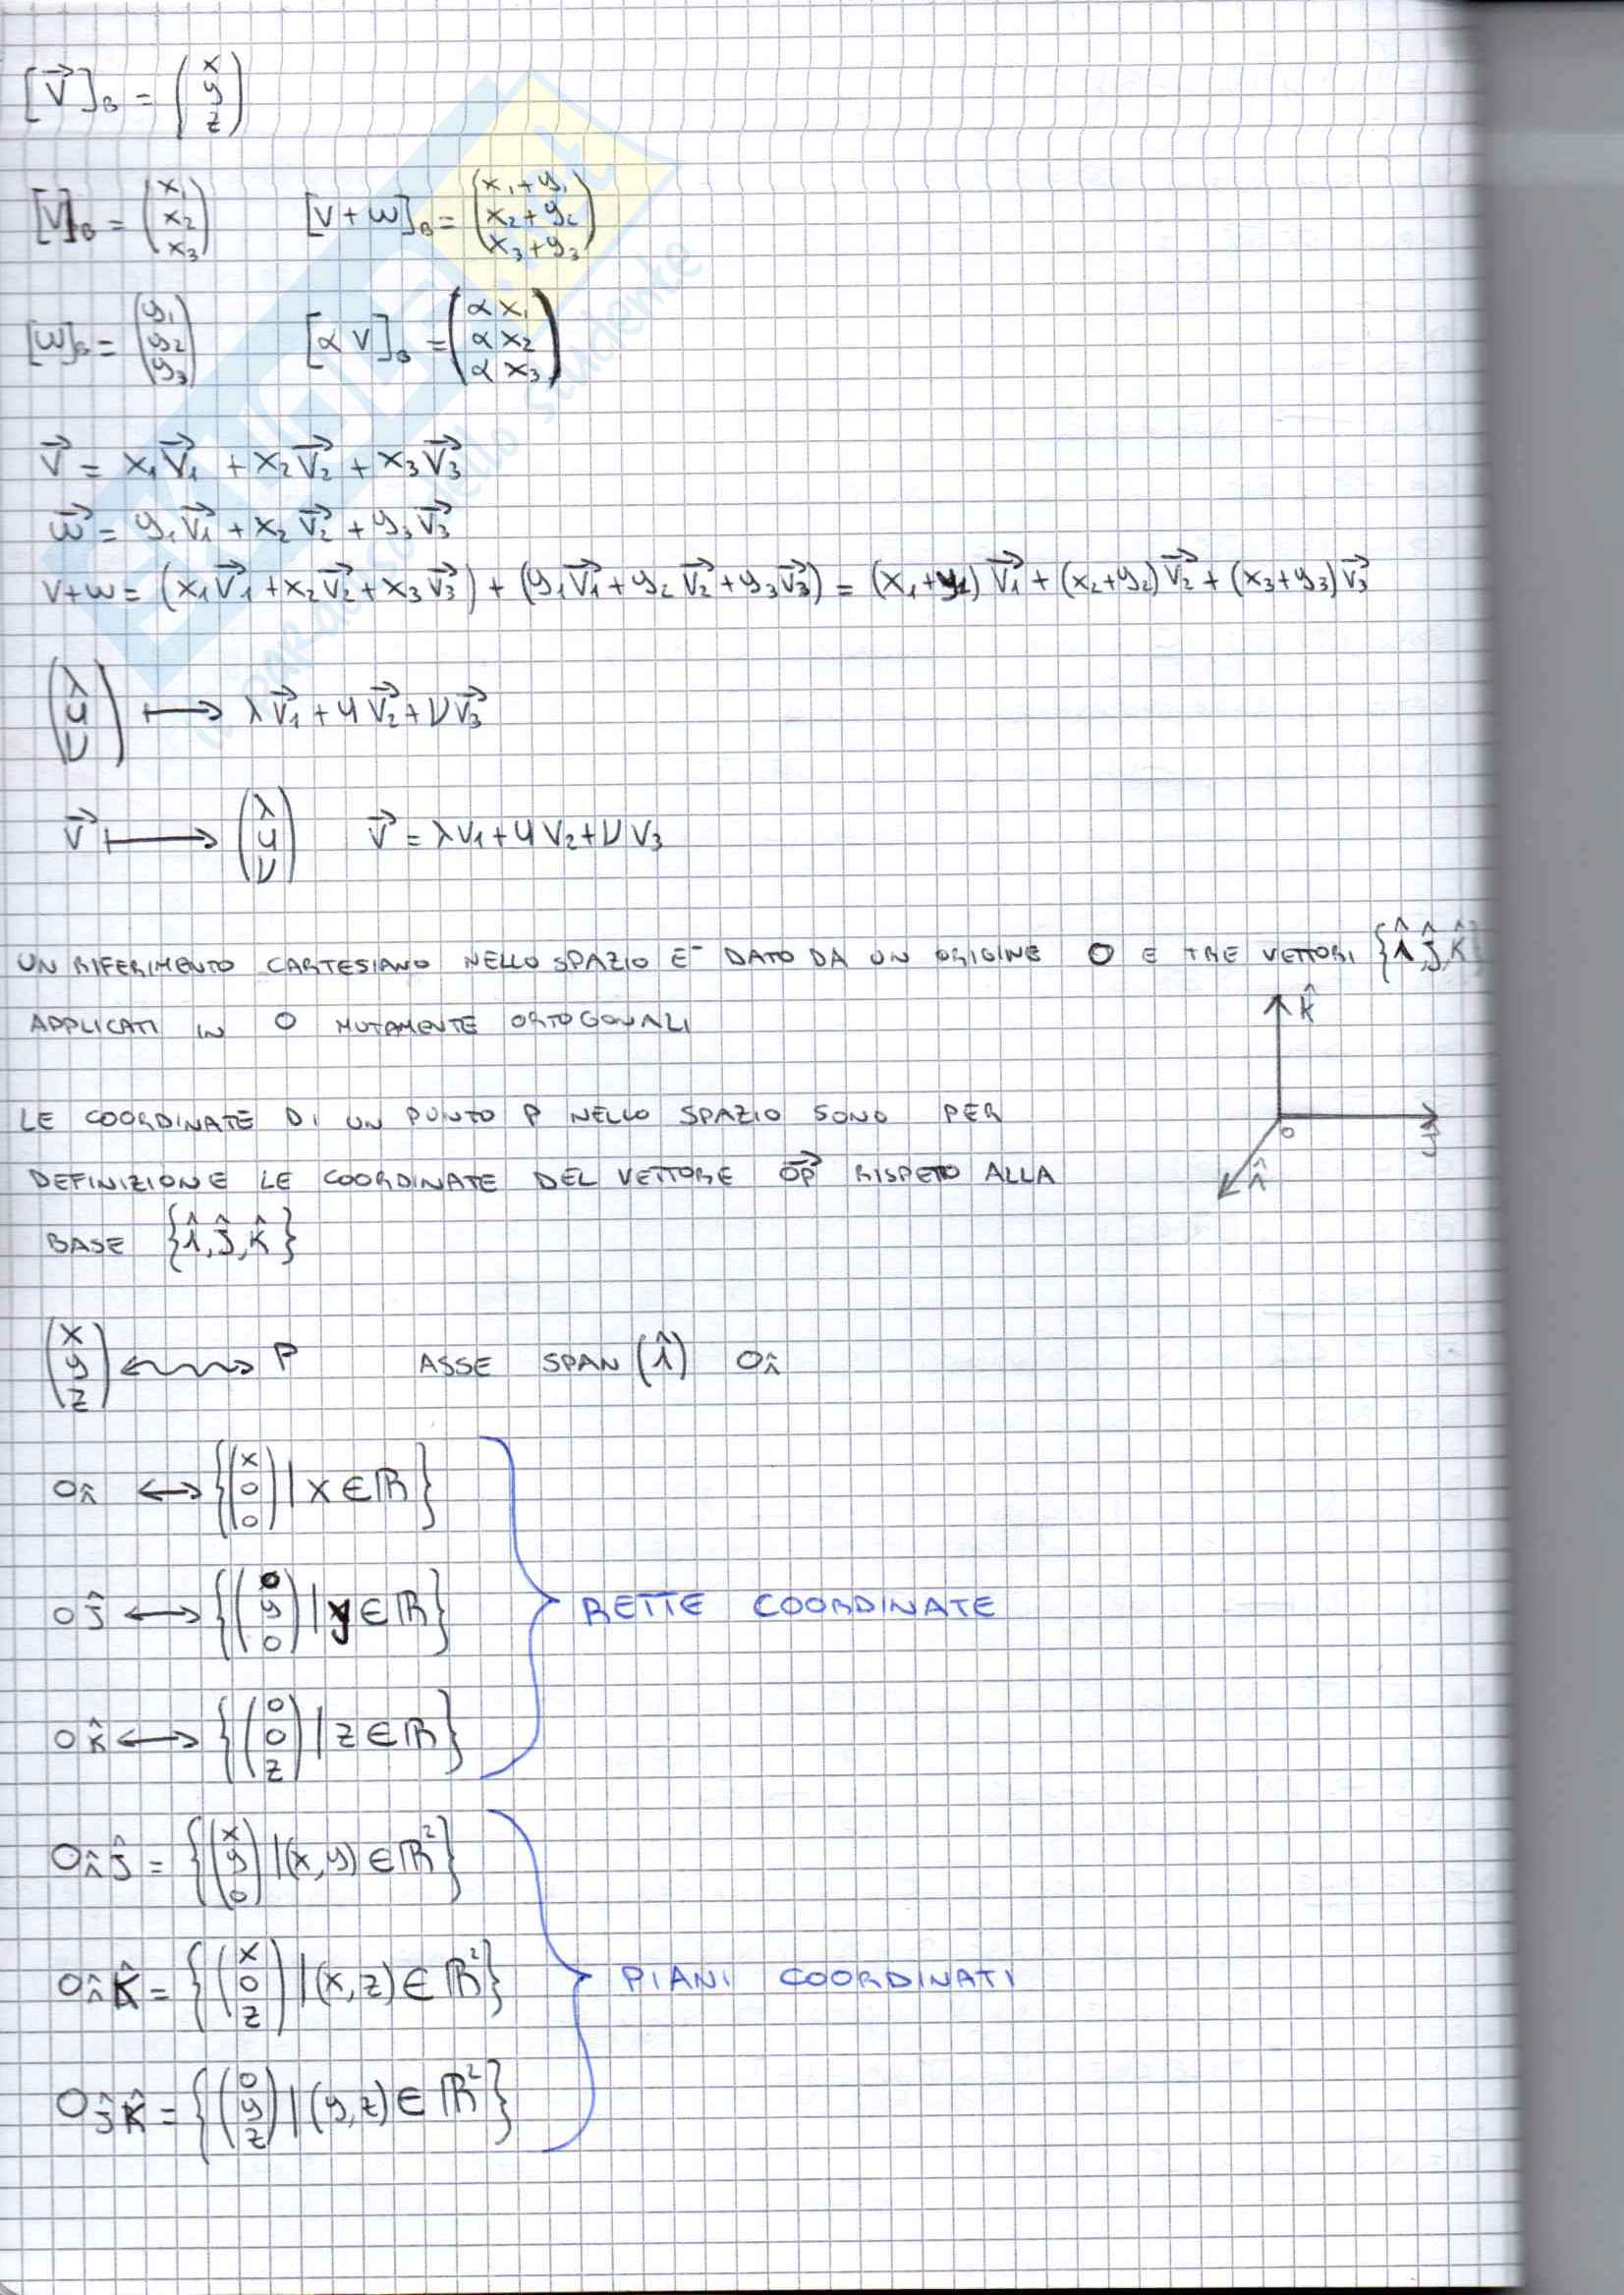 [V⃗]_B = (x y z)
[V]_B = (x₁ x₂ x₃) [V + W]_B = (x₁+y₁ x₂+y₂ x₃+y₃)
[W]_B = (y₁ y₂ y₃) [α V]_B = (α x₁ α x₂ α x₃)
V⃗ = x₁V⃗₁ + x₂V⃗₂ + x₃V⃗₃
W⃗ = y₁V⃗₁ + x₂V⃗₂ + y₃V⃗₃
V+W = (x₁V⃗₁ + x₂V⃗₂ + x₃V⃗₃) + (y₁V⃗₁ + y₂V⃗₂ + y₃V⃗₃) = (x₁+y₁)V⃗₁ + (x₂+y₂)V⃗₂ + (x₃+y₃)V⃗₃
(λ μ ν) ↦ λV⃗₁ + μV⃗₂ + νV⃗₃
V⃗ ↦ (λ μ ν) V⃗ = λV₁ + μV₂ + νV₃
UN RIFERIMENTO CARTESIANO NELLO SPAZIO E' DATO DA UN ORIGINE O E TRE VETTORI {î, ĵ, k̂}
APPLICATI IN O MUTAMENTE ORTOGONALI
k̂
O
ĵ
î
LE COORDINATE DI UN PUNTO P NELLO SPAZIO SONO PER
DEFINIZIONE LE COORDINATE DEL VETTORE OP⃗ RISPETO ALLA
BASE {î, ĵ, k̂}
(x y z) ↭ P ASSE SPAN(î) Oî
Oî ↔ {(x 0 0) | x ∈ ℝ}
Oĵ ↔ {(0 y 0) | y ∈ ℝ}
RETTE COORDINATE
Ok̂ ↔ {(0 0 z) | z ∈ ℝ}
Oîĵ = {(x y 0) | (x,y) ∈ ℝ²}
Oîk̂ = {(x 0 z) | (x,z) ∈ ℝ²}
PIANI COORDINATI
Oĵk̂ = {(0 y z) | (y,z) ∈ ℝ²}